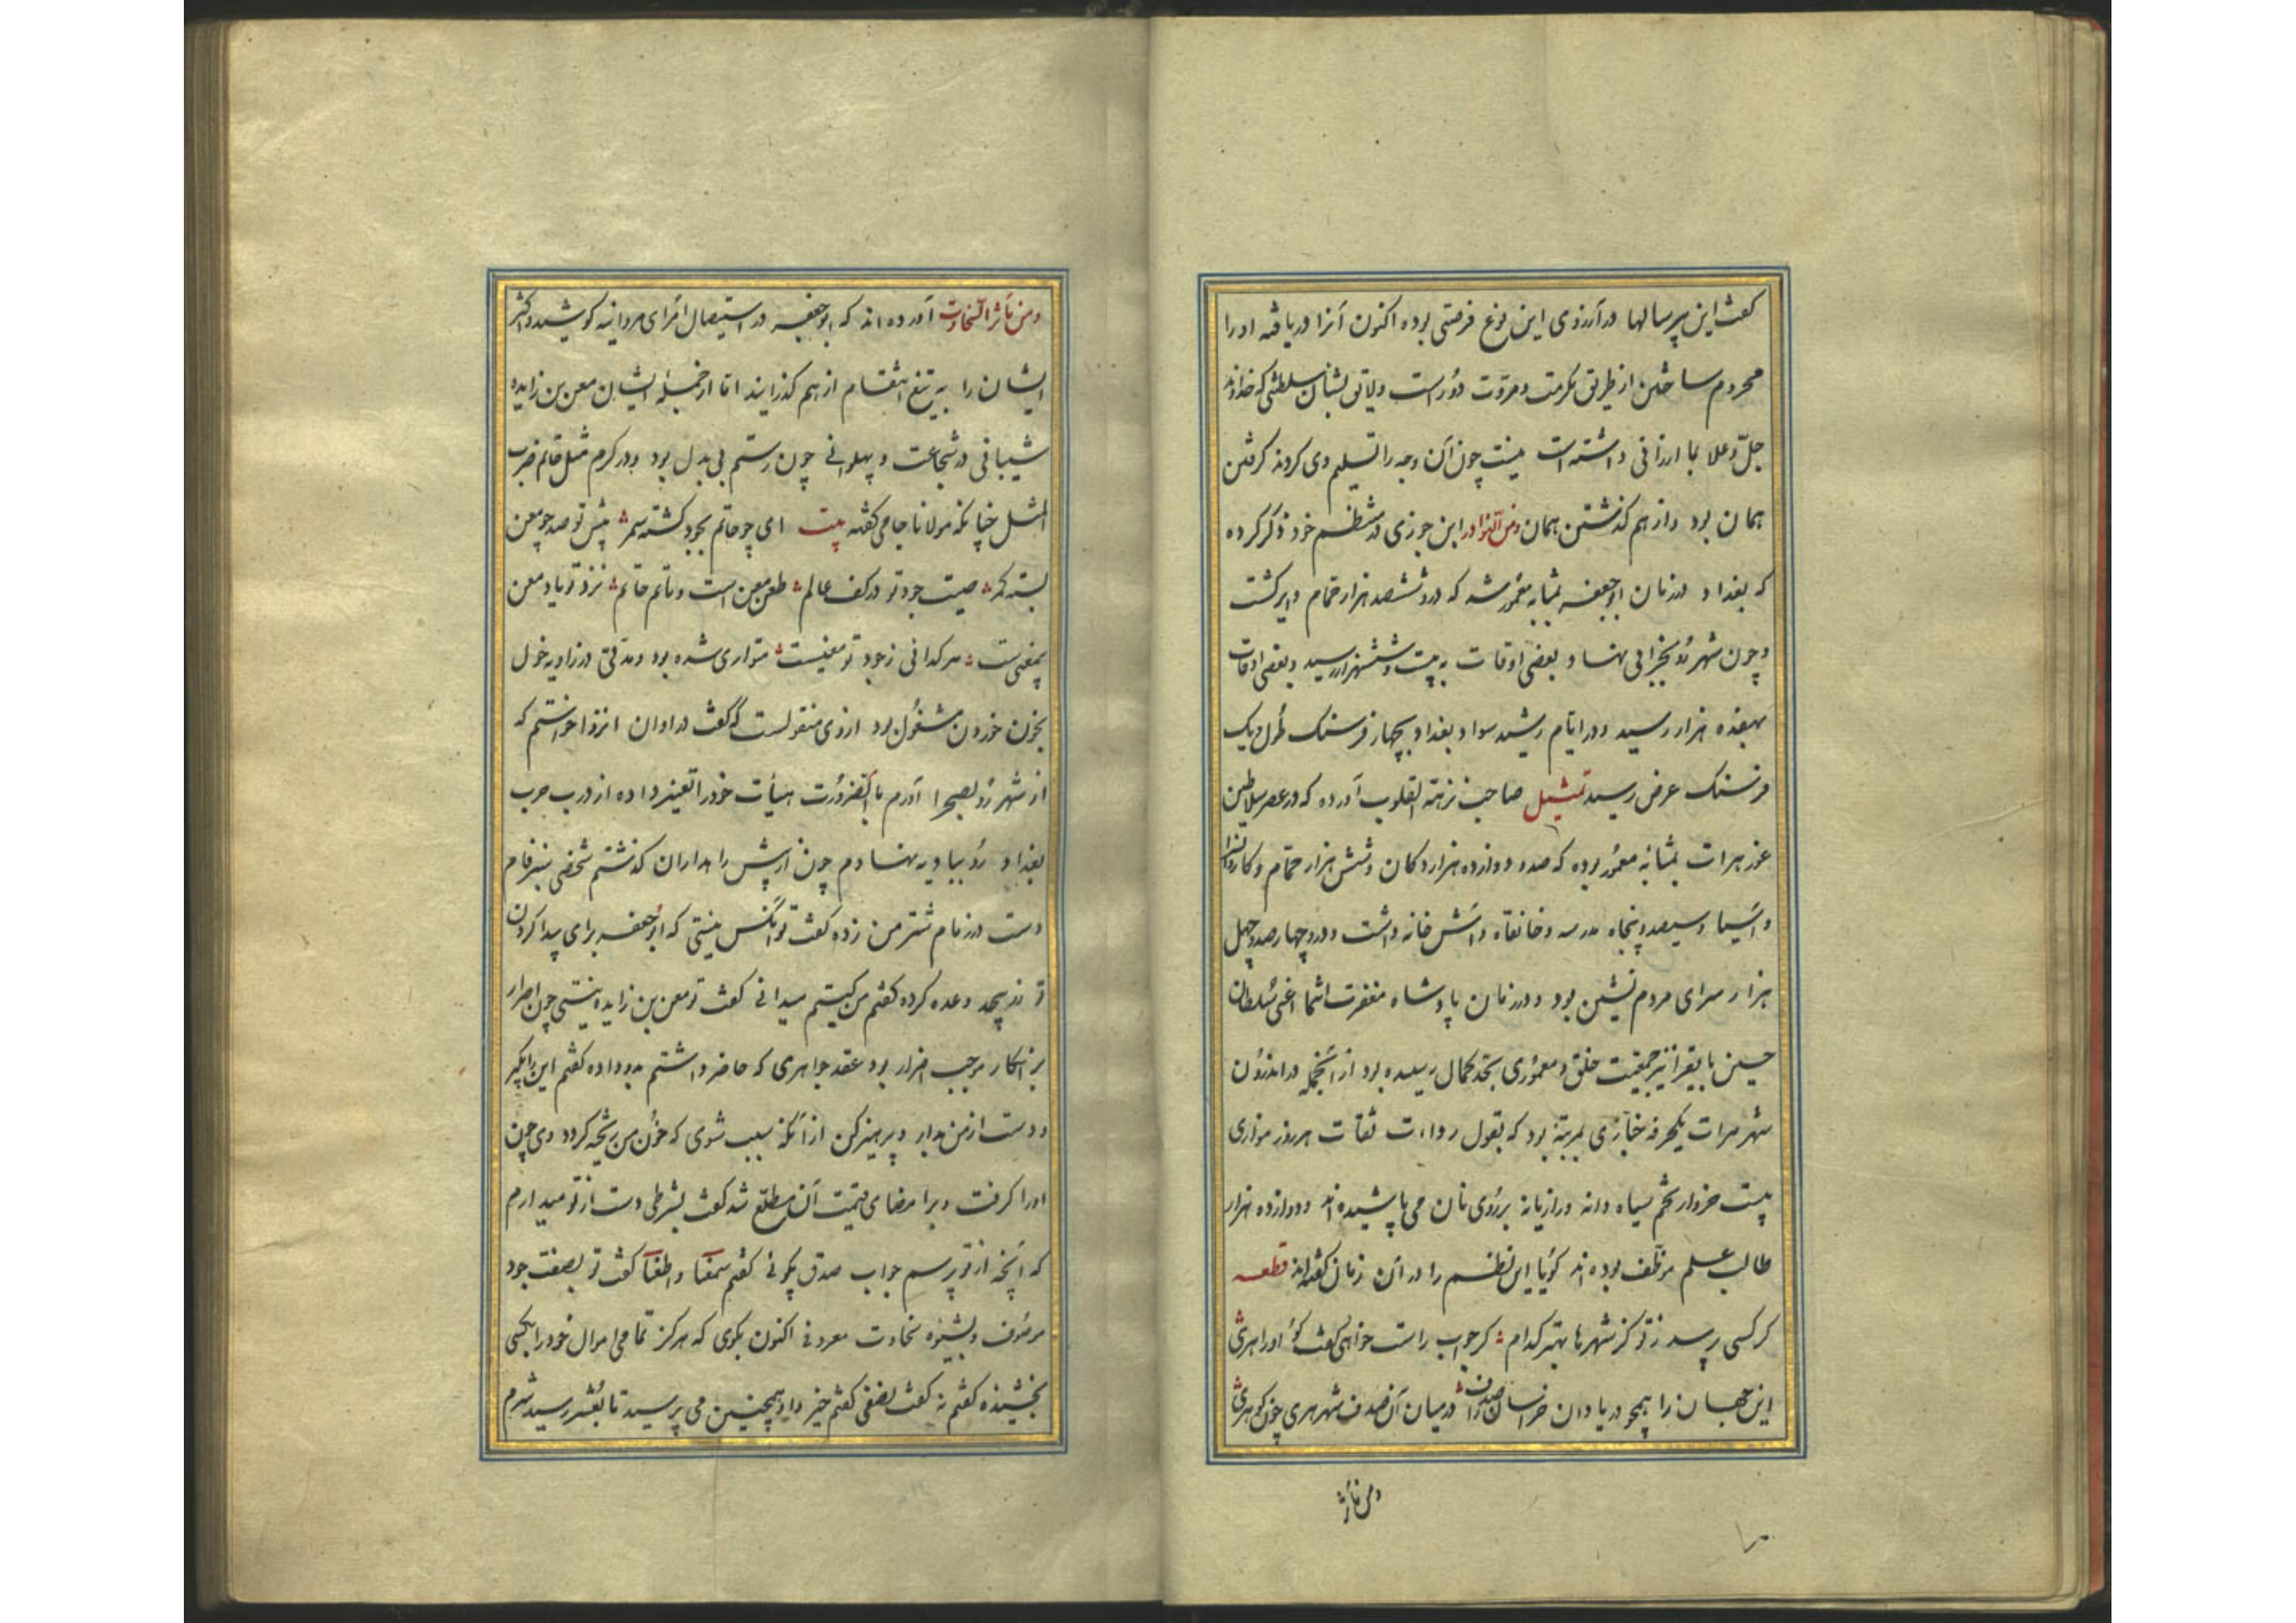 کفت این پیر سالها در آرزوی این نوع فرصتی بوده اکنون آنرا دریافته او را
محروم ساختن از طریق مکرمت و مروّت دورست و لایق بشان سلطنتی که خداوند
جلّ و علا بما ارزانی داشته است نیست چون آن وجه را تسلیم وی کردند کرفتن
همان بود و از هم کذشتن همان و من النوادر ابن جوزی در منتظم خود ذکر کرده
که بغداد در زمان ابوجعفر بمثابه معمور شد که درو ششصد هزار حمّام دایر کشت
و چون شهر رو بخرابی نهاد بعضی اوقات به بیست و شش هزار رسید و بعضی اوقات
بهفده هزار رسید و در ایّام رشید سواد بغداد بچهار فرسنک طول و یک
فرسنک عرض رسید تمثیل صاحب نزهة القلوب آورده که در عصر سلاطین
غور هرات بمثابهٔ معمور بوده که صد و دوازده هزار دکان و شش هزار حمّام و کاروانسرا
و آسیا و سیصد و پنجاه مدرسه و خانقاه و آتش خانه داشت و درو چهار صد و چهل
هزار سرای مردم نشین بود و در زمان پادشاه مغفرت انتما اعنی سلطان
حسین بایقرا نیز جمعیت خلق و معموری بحدّ کمال رسیده بود از آنجمله در اندرون
شهر هرات یکحرفه خبّازی بمرتبهٔ بود که بقول روات ثقات هر روز موازی
بیست خروار تخم سیاه دانه و رازیانه بر روی نان می پاشیده‌اند و دوازده هزار
طالب علم موظّف بوده‌اند کویا این نظم را در آن زمان کفته‌اند قطعه
کر کسی پرسد ز تو کز شهرها بهتر کدام کر جواب راست خواهی کفت کو او را هری
این جهان را همچو دریا دان خراسان را صدف در میان آن صدف شهر هری چون کوهری
و من مآثر
و من مآثر السخاوت آورده‌اند که ابوجعفر در استیصال امرای مروانیه کوشیده اکثر
ایشان را به تیغ انتقام از هم کذرانید امّا از جمله ایشان معن بن زایده
شیبانی در شجاعت و پهلوانی چون رستم بی بدل بود و در کرم مثل حاتم ضرب
المثل چنانکه مولانا جامی کفته بیت ای چو حاتم بجود کشته سمر پیش تو صد چو معن
بسته کمر صیت جود تو در کف عالم طعن معن است و ماتم حاتم نزد تو یاد معن
بیمعنی است هر کدائی ز جود تو معنیست متواری شده بود و مدّتی در زاویه خمول
بخون خوردن مشغول بود از وی منقولست که کفت در اوان انزوا خواستم که
از شهر رو بصحرا آورم بالضرورت هیأت خود را تغییر داده از درب حرب
بغداد رو ببادیه نهادم چون از پیش راهداران کذشتم شخصی سبز فام
دست در زمام شتر من زده کفت تو آنکس نیستی که ابوجعفر برای پیدا کردن
تو زر بیحد وعده کرده کفتم من کیستم میدانی کفت تو معن بن زایده نیستی چون اصرار
بر انکار موجب اضرار بود عقد جواهری که حاضر داشتم بدو داده کفتم این را بکیر
و دست از من بدار و پرهیز کن از آنکه سبب شوی که خون من ریخته کردد وی چون
او را کرفت و بر امضای قیمت آن مطلّع شد کفت بشرطی دست از تو میدارم
که آنچه از تو پرسم جواب صدق بکوئی کفتم سمعًا و اطعنا کفت تو بصفت جود
موصوف و بشیوه سخاوت معروفی اکنون بکوی که هرکز تمامی اموال خود را بکسی
بخشیده کفتم نه کفت نصفی کفتم خیر و همچنین می پرسید تا بعُشر رسید شرم